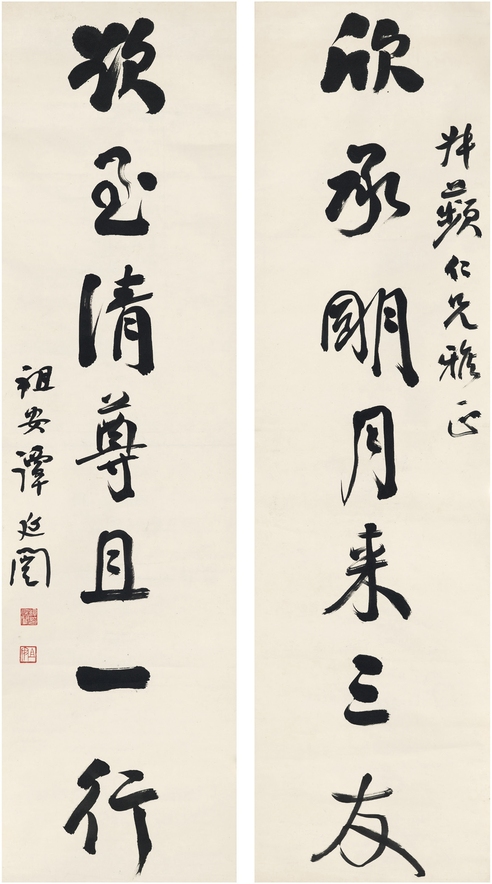 蘋仁兄雅正
欣承明月来三友
清尊且一行
祖安譚延闓